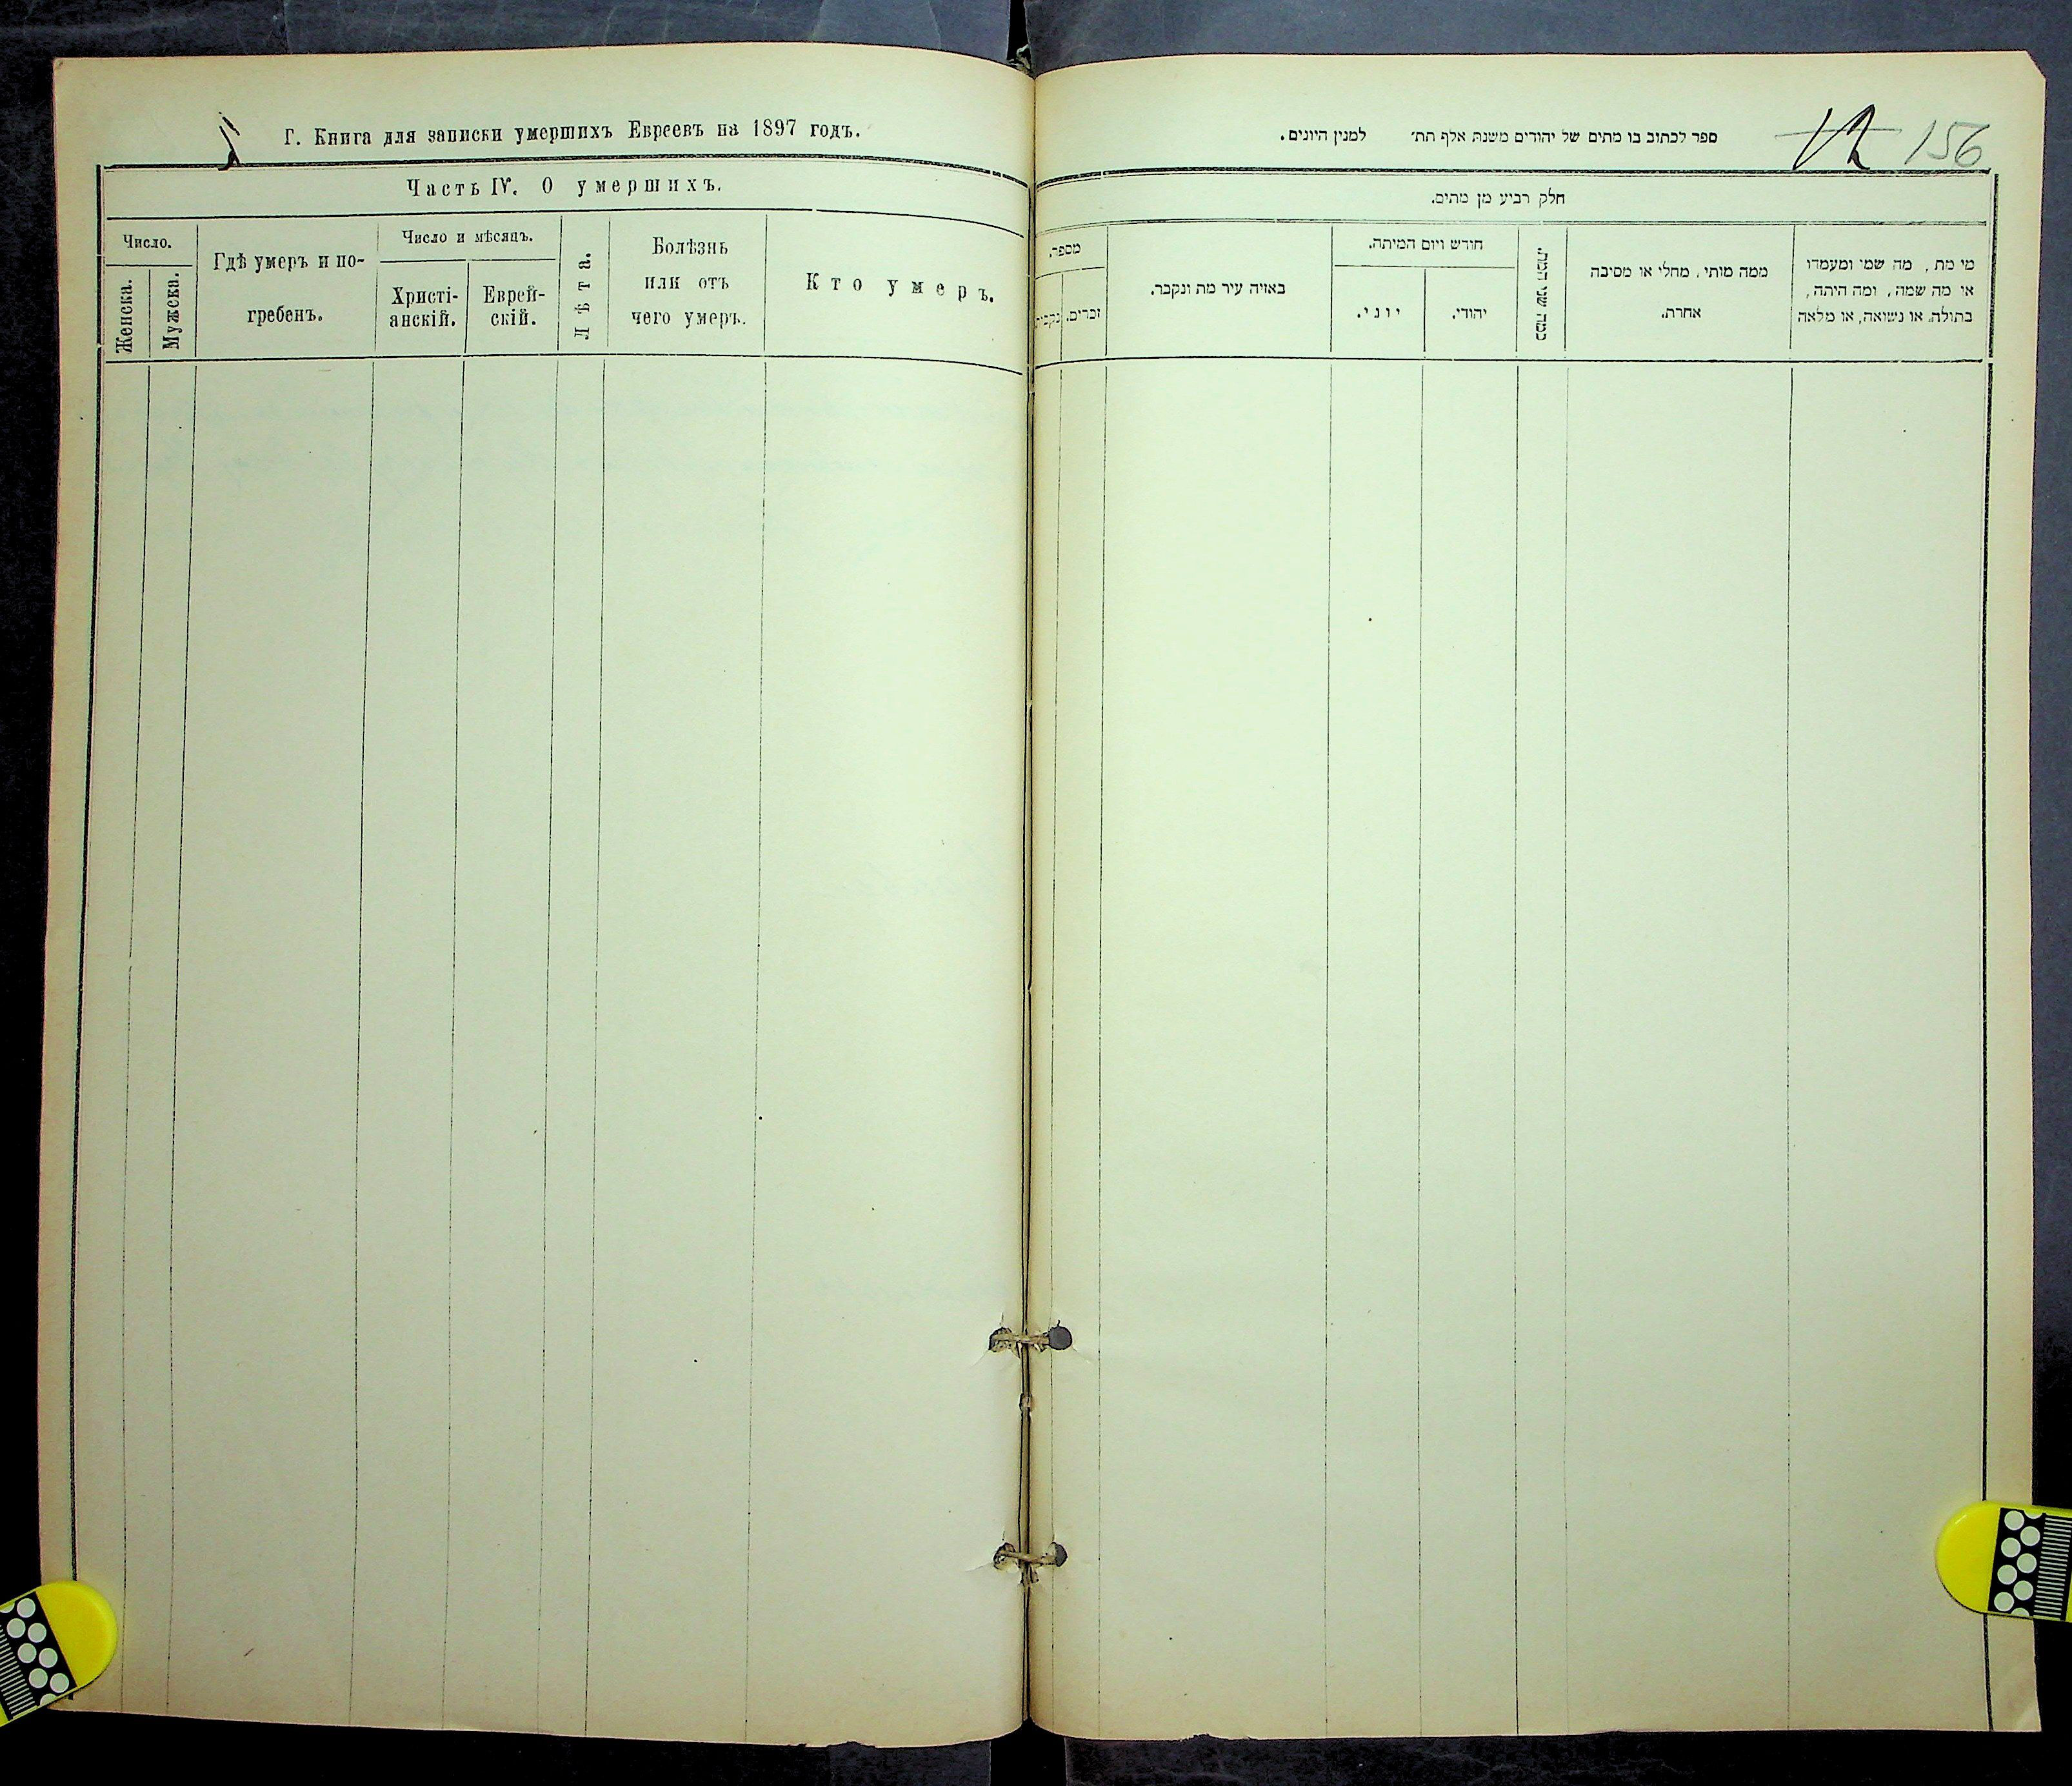 Г. Книга для записки умершихъ Евреевъ на 1897 годъ.
Часть IV. О умершихъ.
Число.
Женска.
Мужска.
Гдѣ умеръ и по-
гребенъ.
Число и мѣсяцъ.
Христі-
анскій.
Еврей-
скій.
Лѣта.
Болѣзнь
или отъ
чего умеръ.
Кто умеръ.
ספר לכתוב בו מתים של יהודים משנת אלף תת׳ למנין היונים.
12 156
חלק רביע מן מתים.
מספר.
נקבות
זכרים.
באויה עיר מת ונקבר.
חודש ויום המיתה.
יוני.
יהודי.
כמה שני המת.
ממה מותי, מחלי או מסיבה
אחרת.
מי מת, מה שמו ומעמדו
או מה שמה, ומה היתה,
בתולה או נשואה, או מלאה